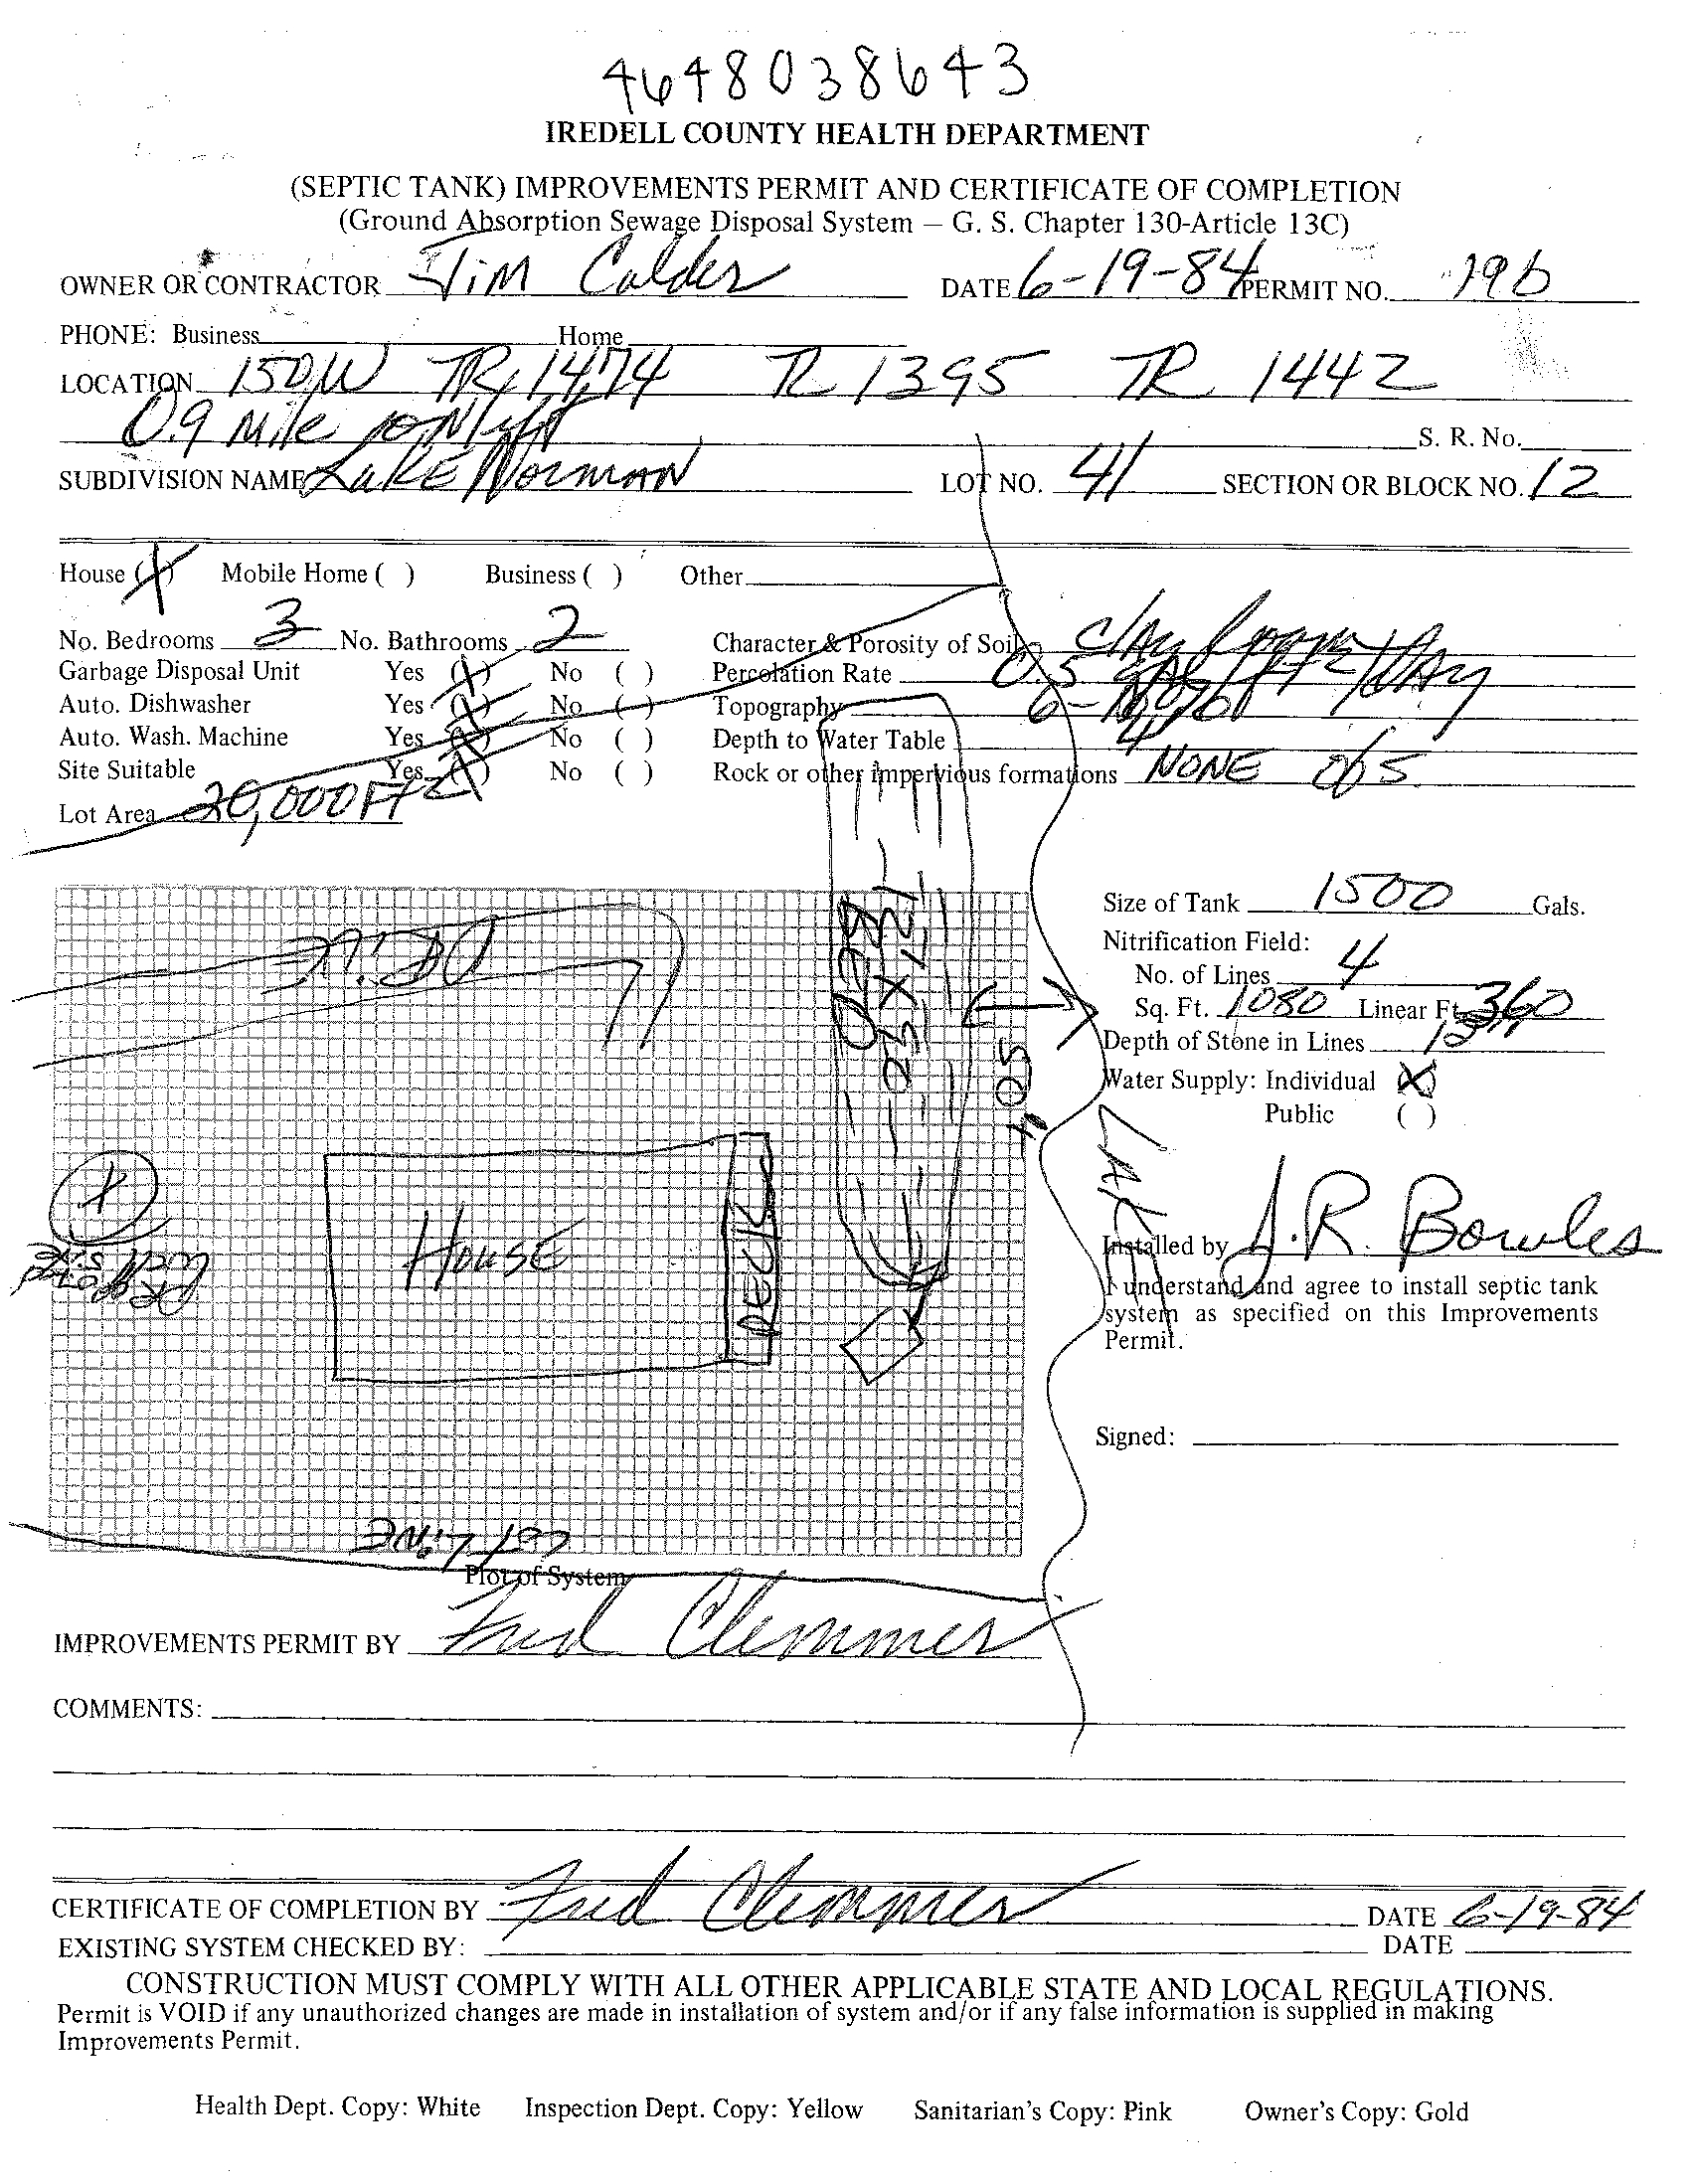 4648038643
IREDELL COUNTY HEALTH DEPARTMENT
(SEPTIC TANK) IMPROVEMENTS PERMIT AND CERTIFICATE OF COMPLETION
(Ground Absorption Sewage Disposal System — G. S. Chapter 130-Article 13C)
OWNER OR CONTRACTOR Jim Calder DATE 6-19-84 PERMIT NO.
PHONE: Business Home
LOCATION 150W TR 1474 TL 1395 TR 1442
0.9 Mile on left S. R. No.
SUBDIVISION NAME Lake Norman LOT NO. 41 SECTION OR BLOCK NO. 12
House (X) Mobile Home ( ) Business ( ) Other
No. Bedrooms 3 No. Bathrooms 2 Character & Porosity of Soil Clay Loam
Garbage Disposal Unit Yes (X) No ( ) Percolation Rate 0.5 gal/ft2/DAy
Auto. Dishwasher Yes (X) No ( ) Topography
Auto. Wash. Machine Yes (X) No ( ) Depth to Water Table
Site Suitable Yes (X) No ( ) Rock or other impervious formations NONE
Lot Area 20,000 Ft2
Size of Tank 1500 Gals.
Nitrification Field:
No. of Lines 4
Sq. Ft. 1080 Linear Ft. 360
Depth of Stone in Lines 12"
Water Supply: Individual (X)
Public ( )
DRIVE
50'
LAKE
HOUSE
DECK
Installed by J.R. Bowles
I understand and agree to install septic tank
system as specified on this Improvements
Permit.
Signed:
Lot LiNE
Plot of System
IMPROVEMENTS PERMIT BY Fred Clemmer
COMMENTS:
CERTIFICATE OF COMPLETION BY Fred Clemmer DATE 6-19-84
EXISTING SYSTEM CHECKED BY: DATE
CONSTRUCTION MUST COMPLY WITH ALL OTHER APPLICABLE STATE AND LOCAL REGULATIONS.
Permit is VOID if any unauthorized changes are made in installation of system and/or if any false information is supplied in making
Improvements Permit.
Health Dept. Copy: White Inspection Dept. Copy: Yellow Sanitarian's Copy: Pink Owner's Copy: Gold